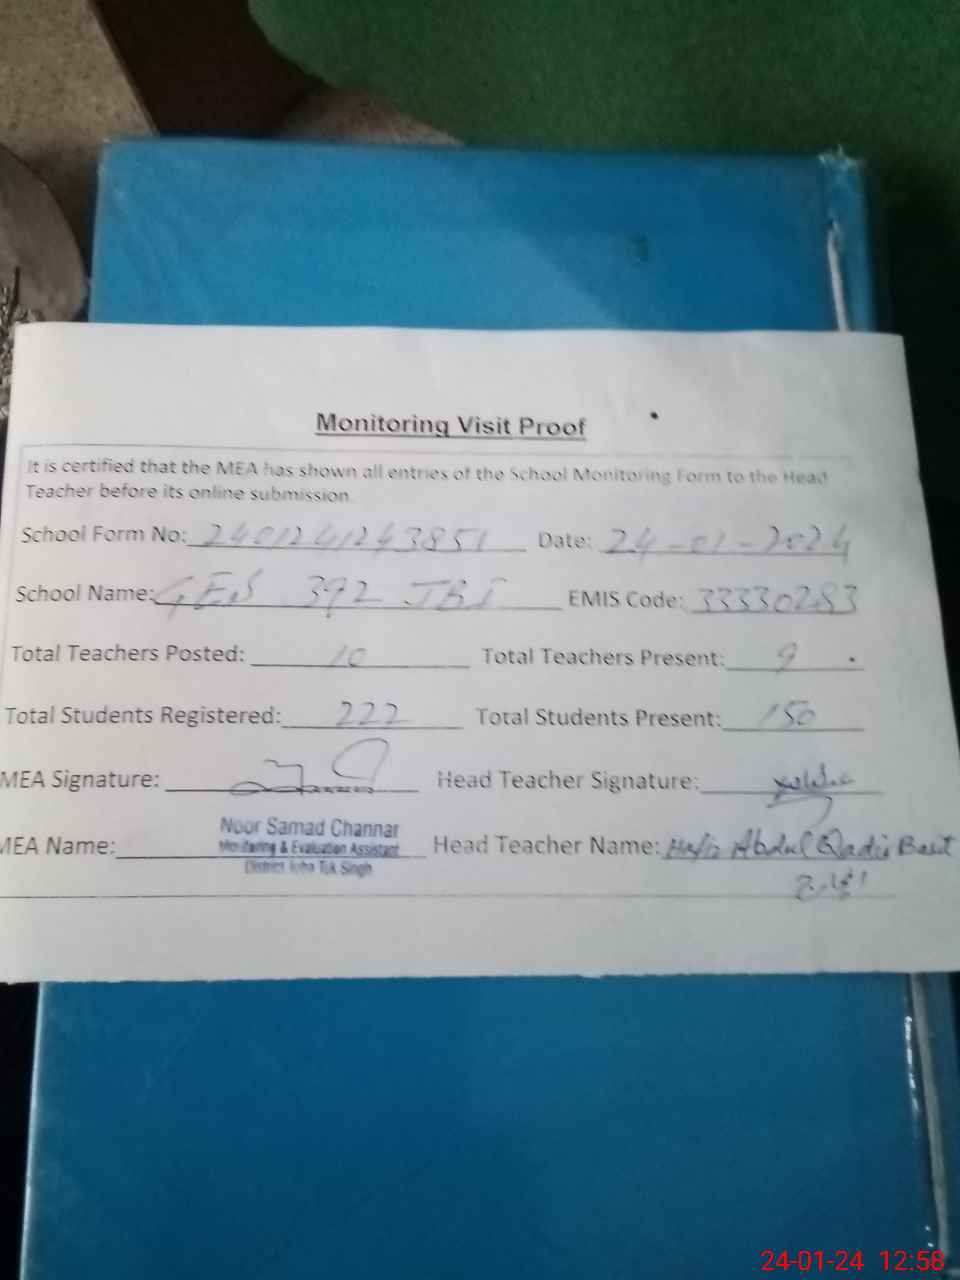 Monitoring Visit Proof
It is certified that the MEA has shown all entries of the School Monitoring Form to the Head
Teacher before its online submission.
School Form No: 2401241243851 Date: 24-01-2024
School Name: GES 392 JBI EMIS Code: 33330283
Total Teachers Posted: 10 Total Teachers Present: 9
Total Students Registered: 222 Total Students Present: 150
MEA Signature: Head Teacher Signature:
MEA Name: Noor Samad Channar Head Teacher Name: Hafiz Abdul Qadir Basit
Monitoring & Evaluation Assistant
District Toba Tek Singh
انچارج
24-01-24 12:58